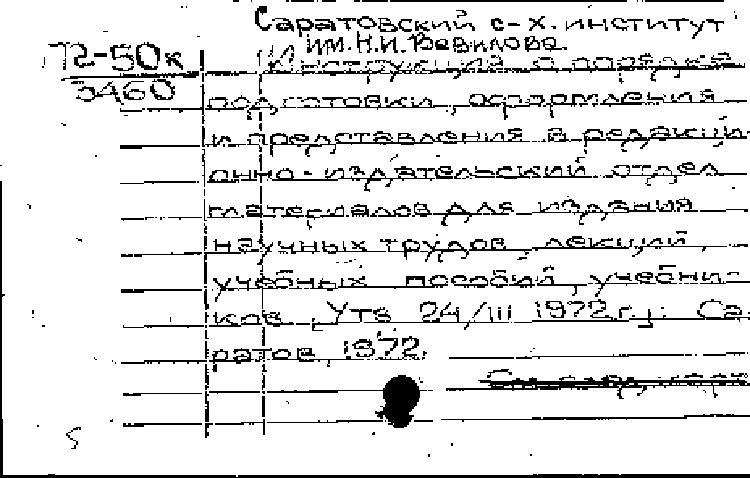 Саратовский с-х. институт
им. Н.И. Вавилова.
72-50к
3460
Инструкция о порядке
подготовки, оформления
и представления в редакци-
онно-издательский отдел
материалов для издания
научных трудов, лекций,
учебных пособий, учебни-
ков. Утв 24/III 1972 г.]. Са-
ратов, 1972.
См. след. карт
5